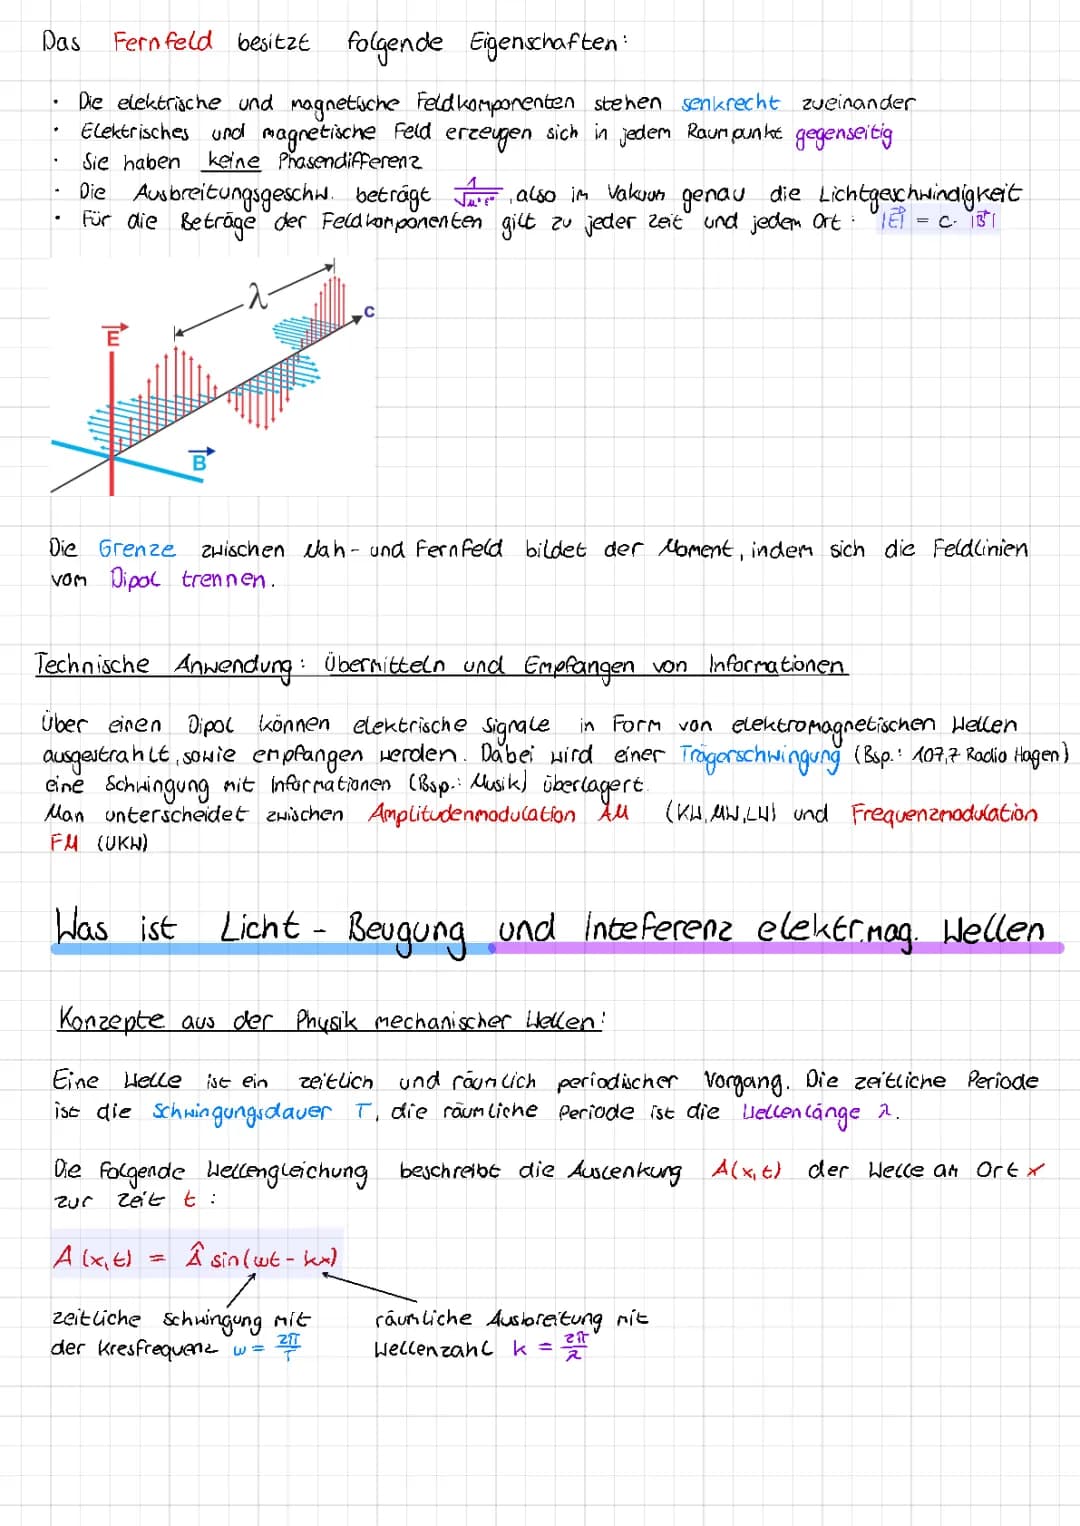 Das Fernfeld besitzt folgende Eigenschaften:
• Die elektrische und magnetische Feldkomponenten stehen senkrecht zueinander
• Elektrisches und magnetische Feld erzeugen sich in jedem Raumpunkt gegenseitig
• Sie haben keine Phasendifferenz
• Die Ausbreitungsgeschw. beträgt 1/√μ·ε, also im Vakuum genau die Lichtgeschwindigkeit
• Für die Beträge der Feldkomponenten gilt zu jeder Zeit und jedem Ort: |E⃗| = c·|B⃗|
λ
c
E⃗
B⃗
Die Grenze zwischen Nah- und Fernfeld bildet der Moment, indem sich die Feldlinien
vom Dipol trennen.
Technische Anwendung: Übermitteln und Empfangen von Informationen
Über einen Dipol können elektrische Signale in Form von elektromagnetischen Wellen
ausgestrahlt, sowie empfangen werden. Dabei wird einer Trägerschwingung (Bsp.: 107,7 Radio Hagen)
eine Schwingung mit Informationen (Bsp.: Musik) überlagert.
Man unterscheidet zwischen Amplitudenmodulation AM (KW, MW, LW) und Frequenzmodulation
FM (UKW)
Was ist Licht - Beugung und Inteferenz elektr.mag. Wellen
Konzepte aus der Physik mechanischer Wellen:
Eine Welle ist ein zeitlich und räumlich periodischer Vorgang. Die zeitliche Periode
ist die Schwingungsdauer T, die räumliche Periode ist die Wellenlänge λ.
Die folgende Wellengleichung beschreibt die Auslenkung A(x,t) der Welle am Ort x
zur Zeit t:
A(x,t) = Â sin(ωt - kx)
zeitliche Schwingung mit räumliche Ausbreitung mit
der Kresfrequenz ω = 2π/T Wellenzahl k = 2π/λ